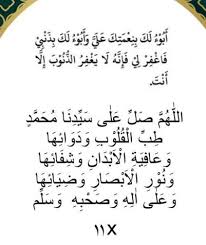 أَبُوْءُ لَكَ بِنِعْمَتِكَ عَلَيَّ وَأَبُوْءُ لَكَ بِذَنْبِيْ
فَاغْفِرْ لِيْ فَإِنَّهُ لَا يَغْفِرُ الذُّنُوْبَ إِلَّا
أَنْتَ.
اَللّٰهُمَّ صَلِّ عَلَى سَيِّدِنَا مُحَمَّدٍ
طِبِّ الْقُلُوْبِ وَدَوَائِهَا
وَعَافِيَةِ الْأَبْدَانِ وَشِفَائِهَا
وَنُوْرِ الْأَبْصَارِ وَضِيَائِهَا
وَعَلَى اٰلِهِ وَصَحْبِهِ وَسَلِّمْ
١١X